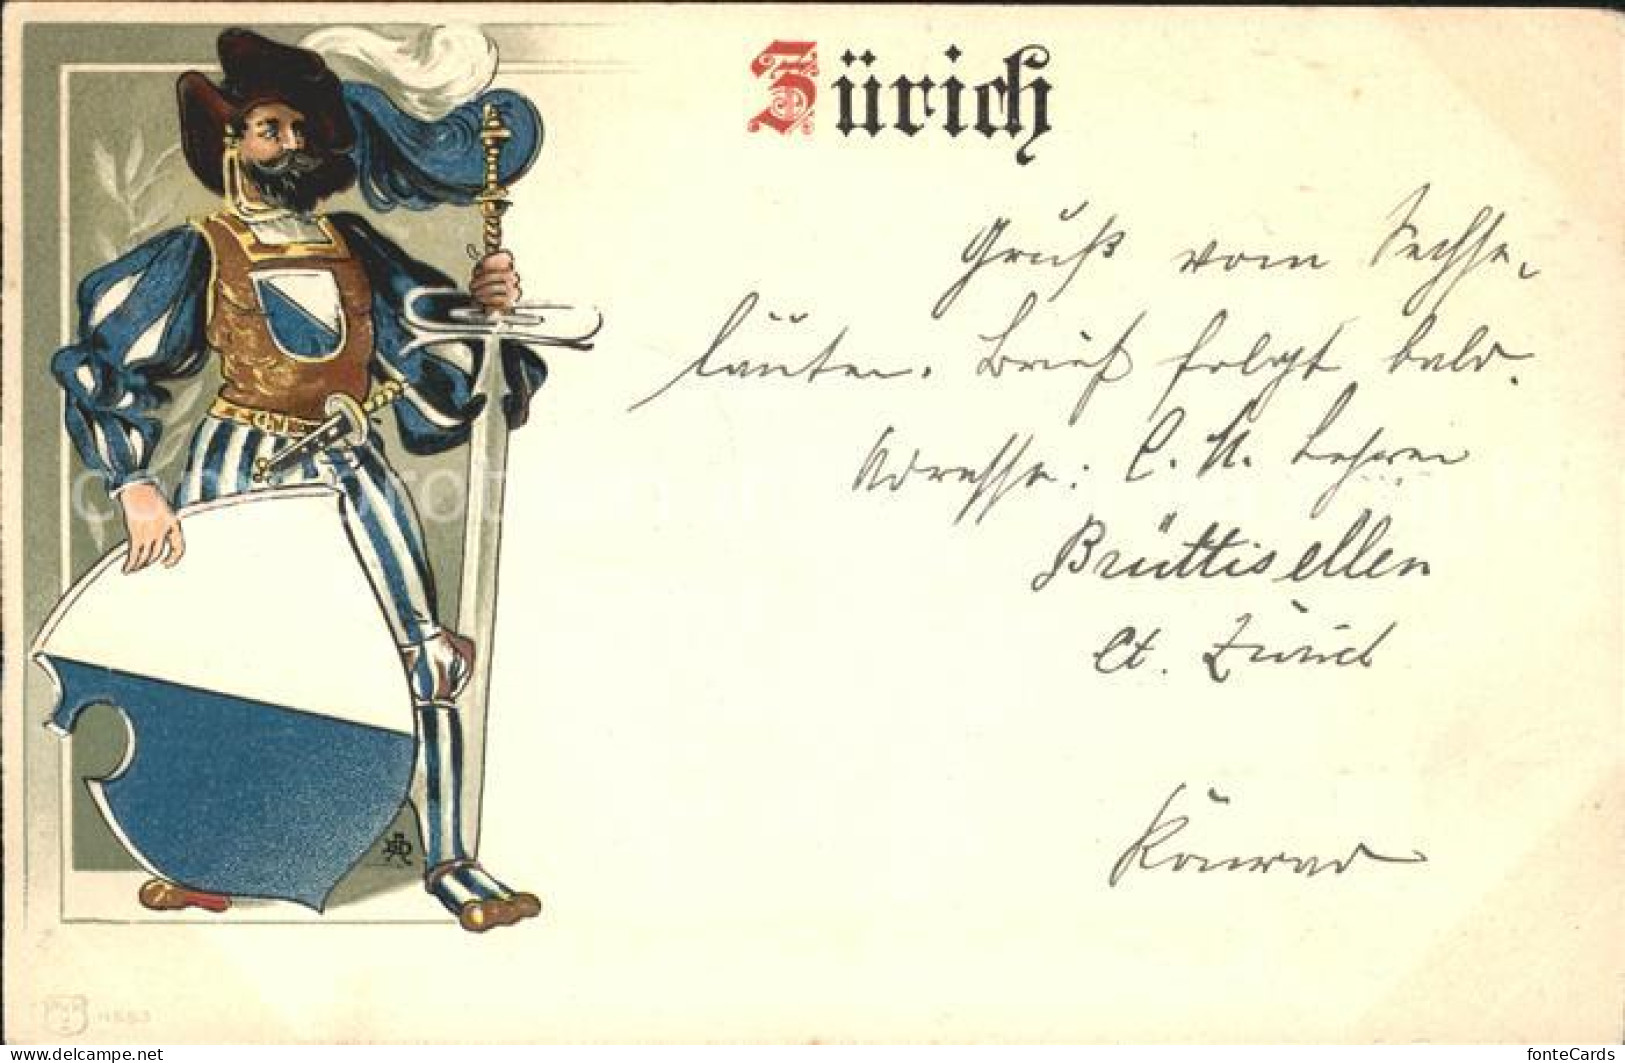 Zürich
Gruß vom Sechse-
läuten. Brief folgt bald.
Adresse: C. A. Lehrer
Brüttisellen
Ct. Zürich
Konrad
www.delcampe.net
fonteCards